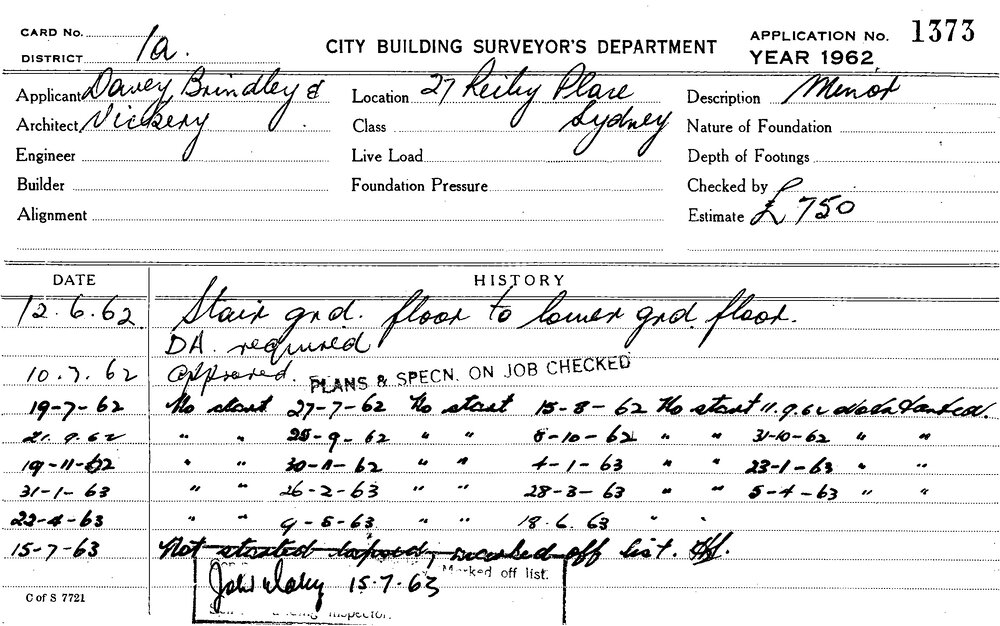 CARD No.
DISTRICT 1a.
CITY BUILDING SURVEYOR'S DEPARTMENT
APPLICATION No. 1373
YEAR 1962
Applicant Davey Brindley &
Architect Vickery
Engineer
Builder
Alignment
Location 27 Reiby Place
Sydney
Class
Live Load
Foundation Pressure
Description Minor
Nature of Foundation
Depth of Footings
Checked by
Estimate £750
DATE HISTORY
12.6.62 Stair grd. floor to lower grd. floor.
DA. required
10.7.62 approved. PLANS & SPECN. ON JOB CHECKED
19-7-62 No start 27-7-62 No start 15-8-62 No start 11.9.62
21.9.62 " " 25-9-62 " " 8-10-62 " " 31-10-62 " "
19-11-62 " " 30-11-62 " " 4-1-63 " " 23-1-63 " "
31-1-63 " " 26-2-63 " " 28-3-63 " " 5-4-63 " "
22-4-63 " " 9-5-63 " " 18.6.63 " "
15-7-63 Not started lapsed, marked off list.
Marked off list.
15.7.63
Inspector.
C of S 7721